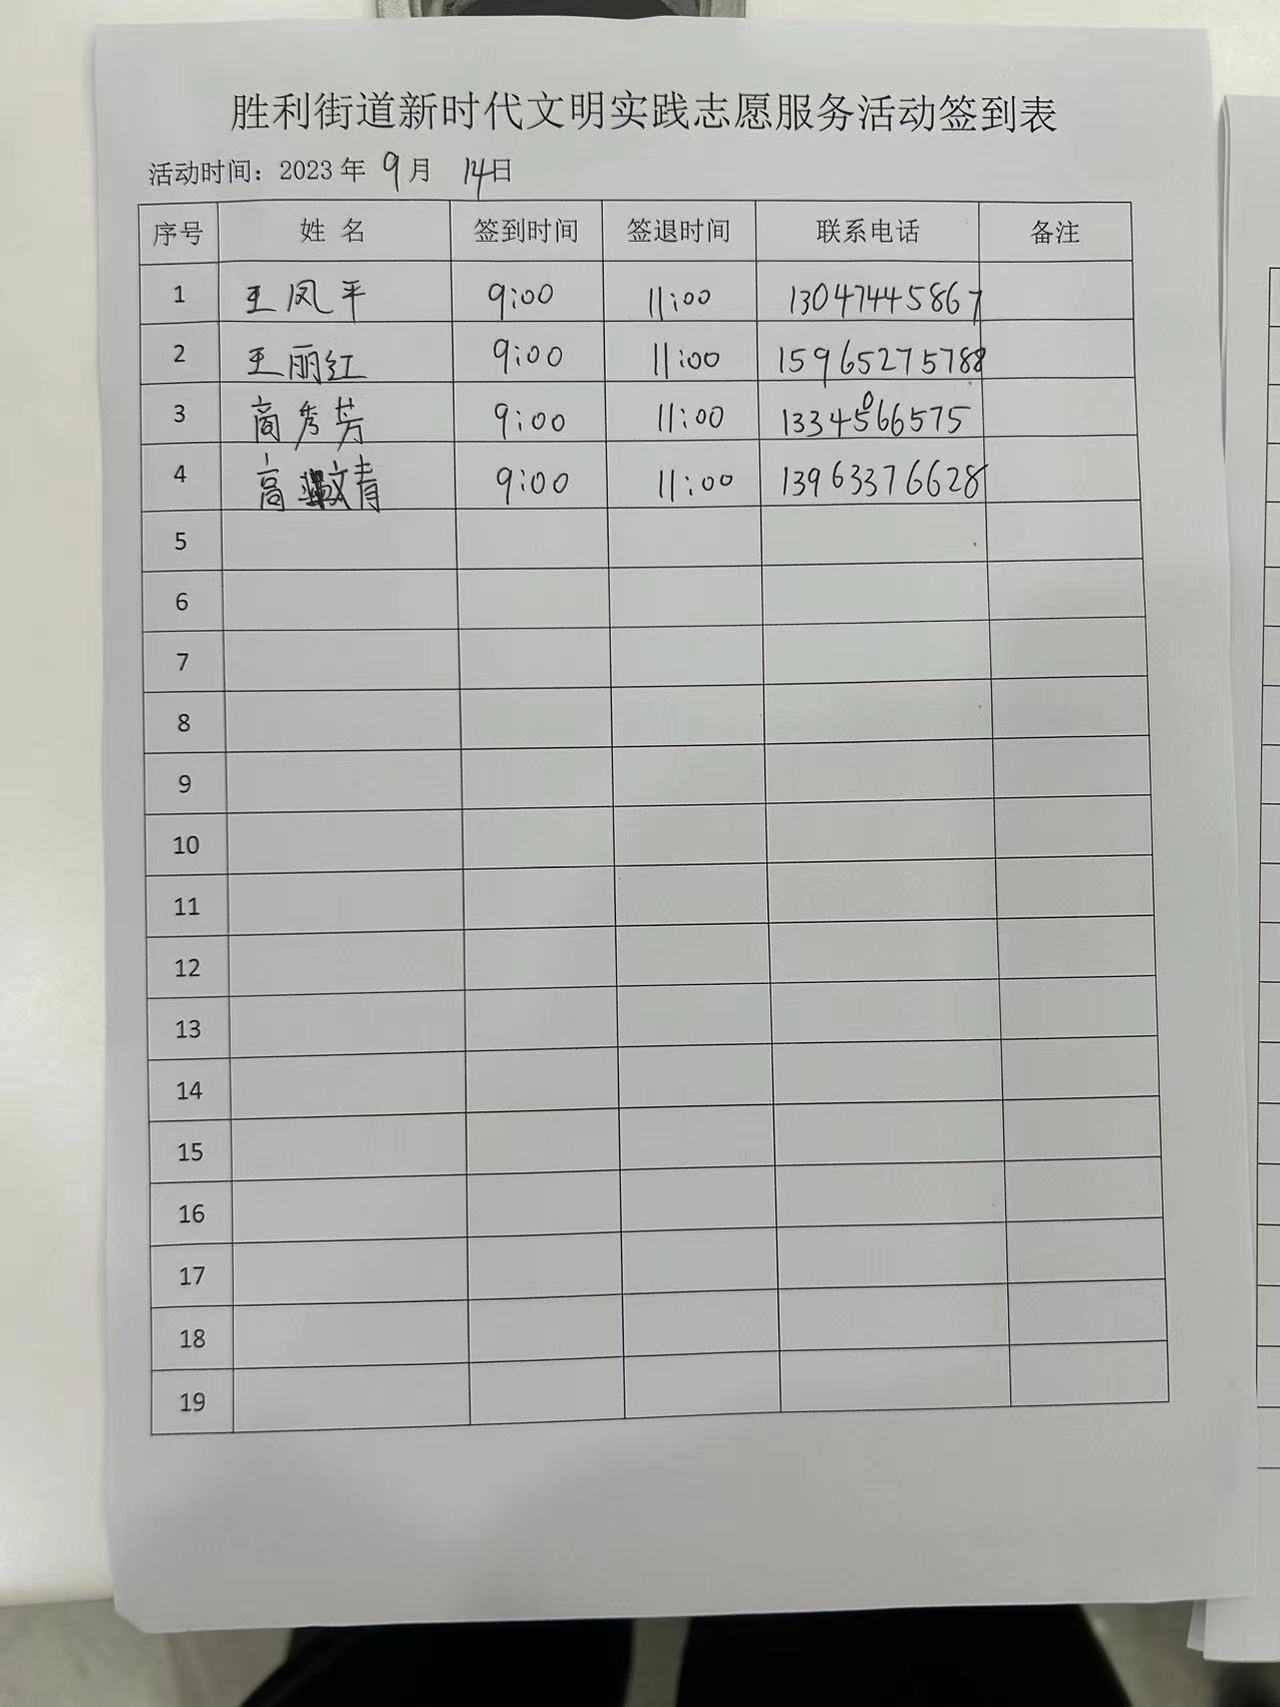 胜利街道新时代文明实践志愿服务活动签到表
活动时间：2023 年 9月 14日
序号 姓 名 签到时间 签退时间 联系电话 备注
1 王凤平 9:00 11:00 13047445867
2 王丽红 9:00 11:00 15965275788
3 高秀芳 9:00 11:00 13345066575
4 高文青 9:00 11:00 13963376628
5
6
7
8
9
10
11
12
13
14
15
16
17
18
19